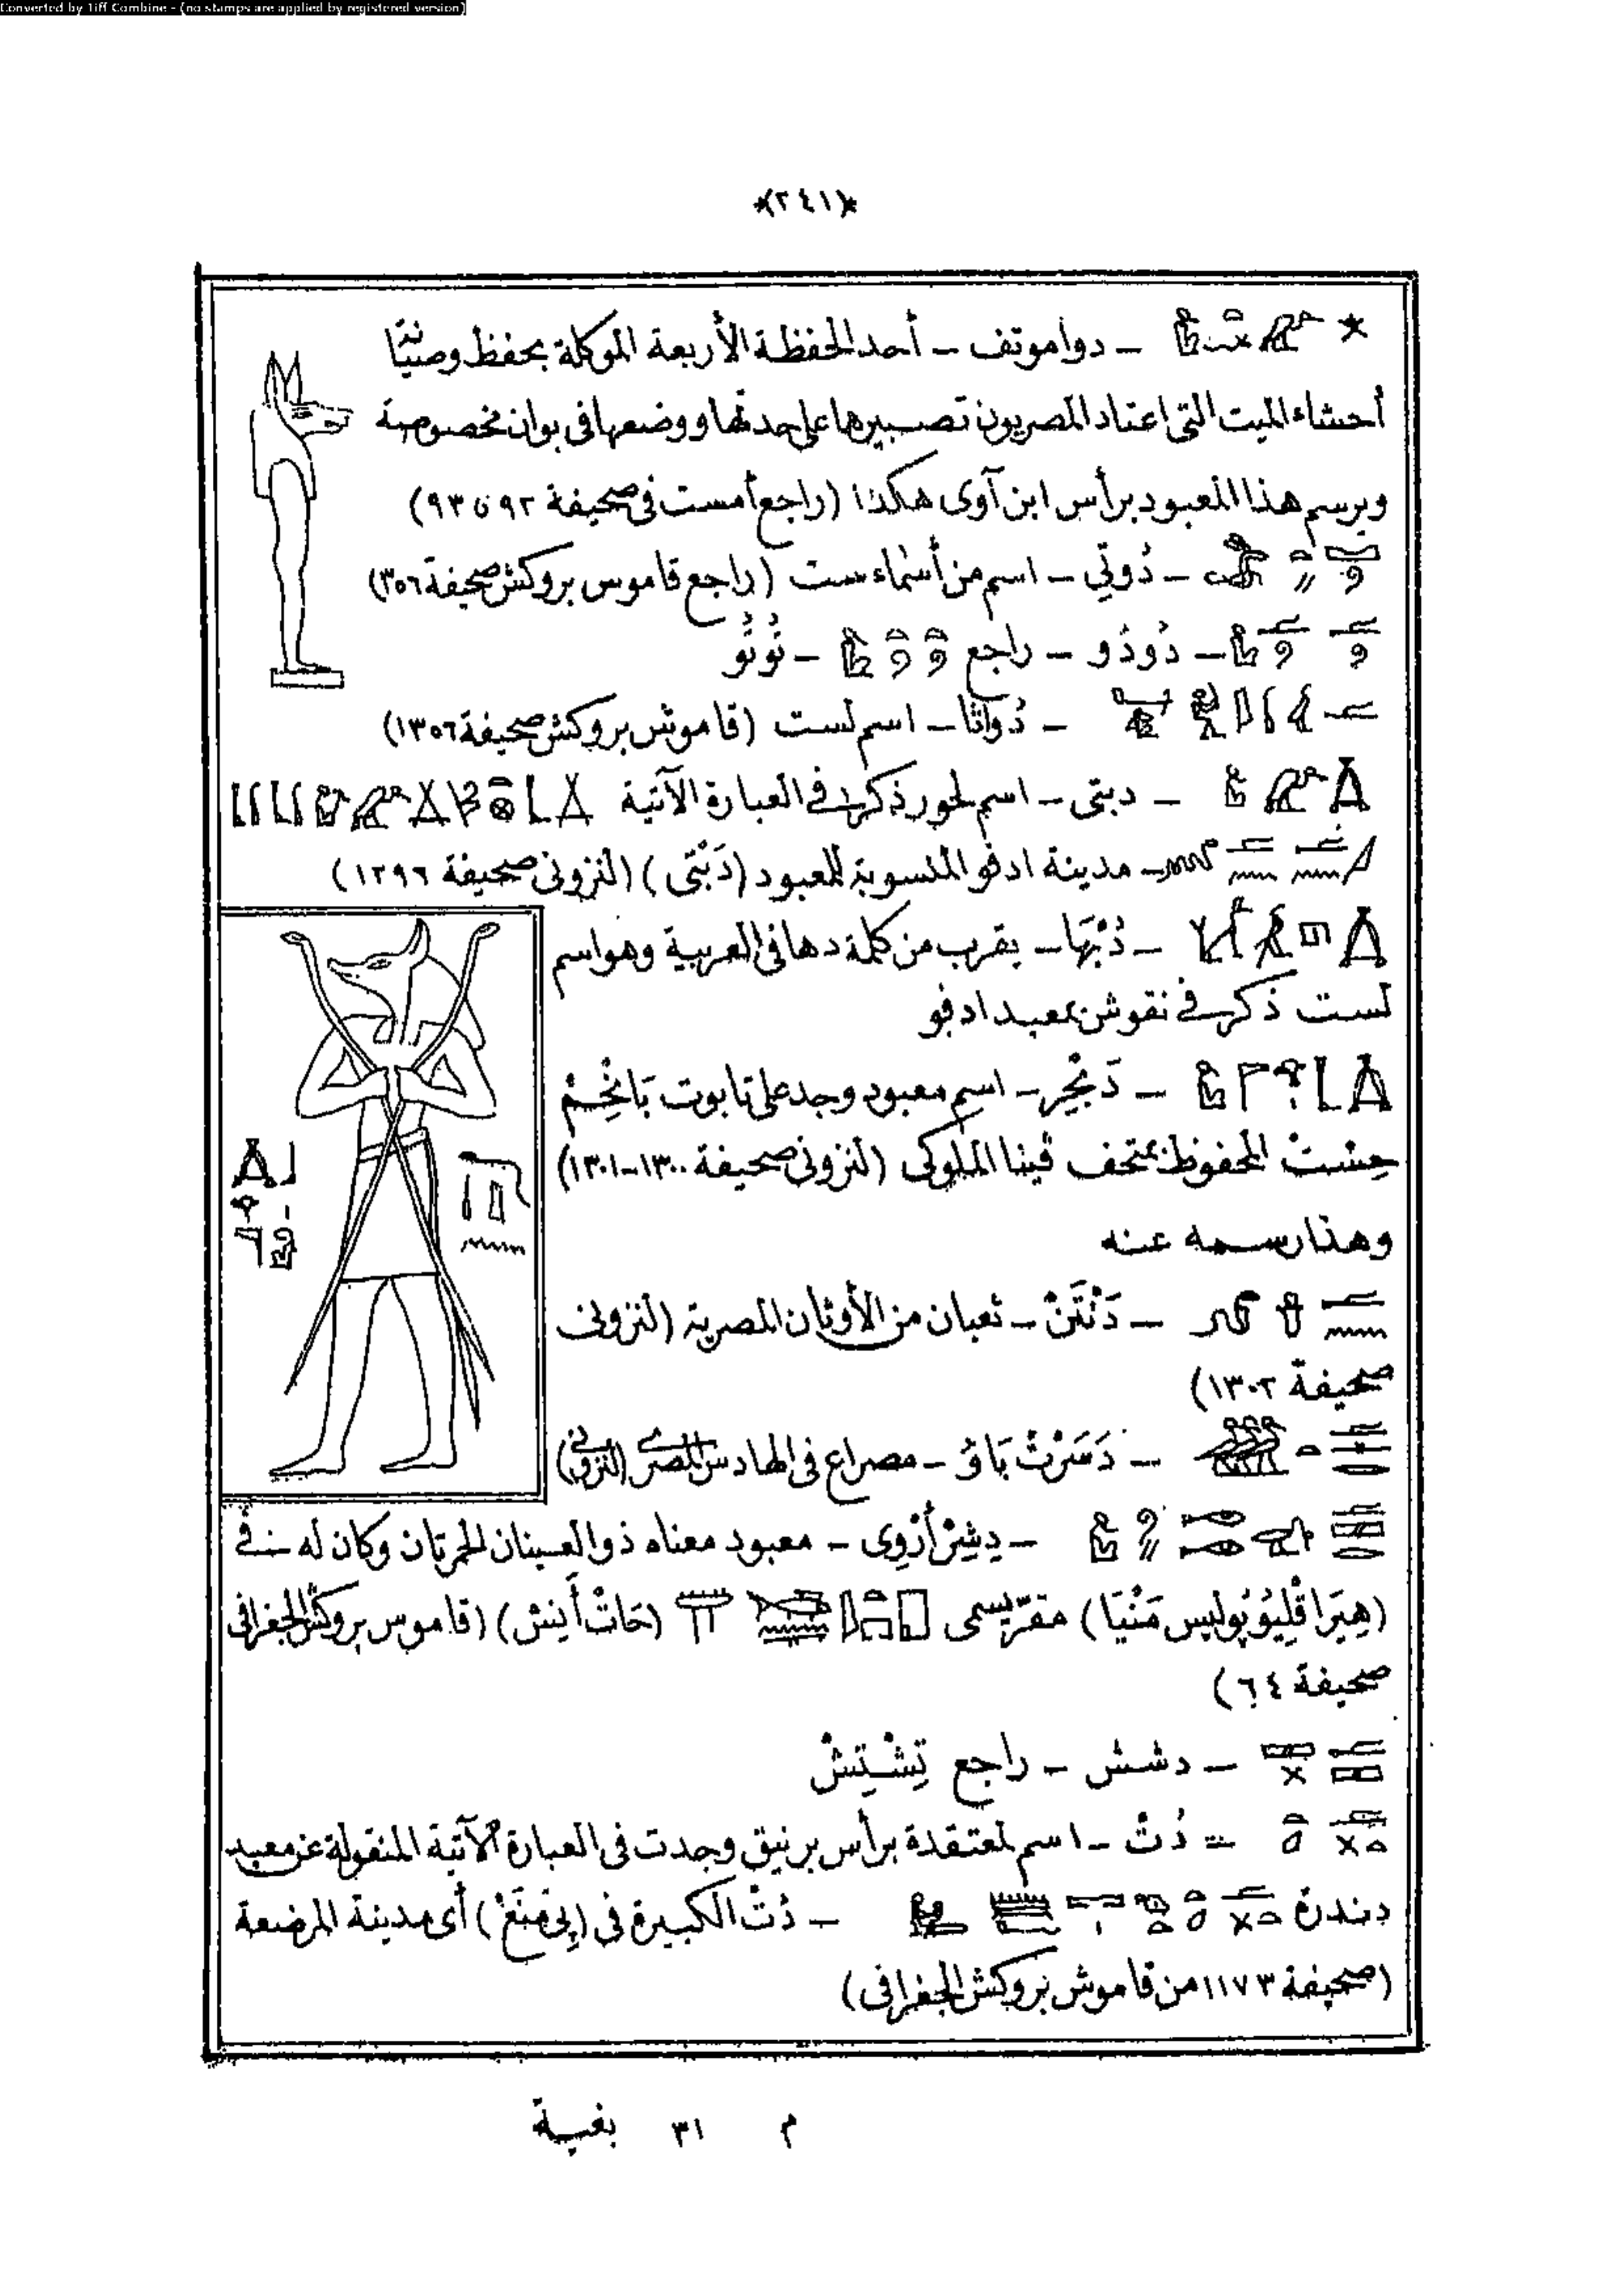 Converted by Tiff Combine - (no stamps are applied by registered version)
*(٢٤١)*
— دواموتف — أحد الحفظة الأربعة الموكلة بحفظ وصيانة
أحشاء الميت التى اعتاد المصريون تصبيرها على حدتها ووضعها فى بوان مخصوصة
ويرسم هذا المعبود برأس ابن آوى هكذا (راجع أمست فى صحيفة ٩٢ و ٩٣)
— دُوتِّي — اسم من أسماء ست (راجع قاموس بروكش صحيفة ٣٥٦)
— دُودُو — راجع — نُونُو
— دُواتا — اسم لست (قاموش بروكش صحيفة ١٣٥٦)
— دبتى — اسم لحور ذكر فى العبارة الآتية
— مدينة ادفو المنسوبة للمعبود (دَبْتى) (لنزونى صحيفة ١٢٩٦)
— دُبْهَا — يقرب من كلمة دها فى العربية وهو اسم
لست ذكر فى نقوش بمعبد ادفو
— دَبْخِر — اسم معبود وجد على تابوت بَانِحِمْ
حِسْتْ المحفوظ بمتحف ڤينا الملوكى (لنزونى صحيفة ١٣٠٠-١٣٠١)
وهذا رسمه عنه
— دَنْتَنْ — ثعبان من الأوثان المصرية (لنزونى
صحيفة ١٣٠٢)
— دَسَرْتْ بَاوُ — مصراع فى الهادس المصرى (لنزونى)
— دِشِرْ أَرْوِى — معبود معناه ذو العينان الحمرتان وكان له فى
(هِيَرَاقْلِيُوْپُوليس مَنْيَا) مقرّ يسمى (حَاتْ أَينش) (قاموس بروكش الجغرافى
صحيفة ٦٤)
— دشش — راجع تِشْتِشْ
= دُتْ — اسم لمعتقدة برأس برنيق وجدت فى العبارة الآتية المنقولة عن معبد
دندرة — دُتْ الكبيرة فى (پِى مَنَعْ) أى مدينة المرضعة
(صحيفة ١١٧٣ من قاموش بروكش الجغرافى)
م ٣١ بغية